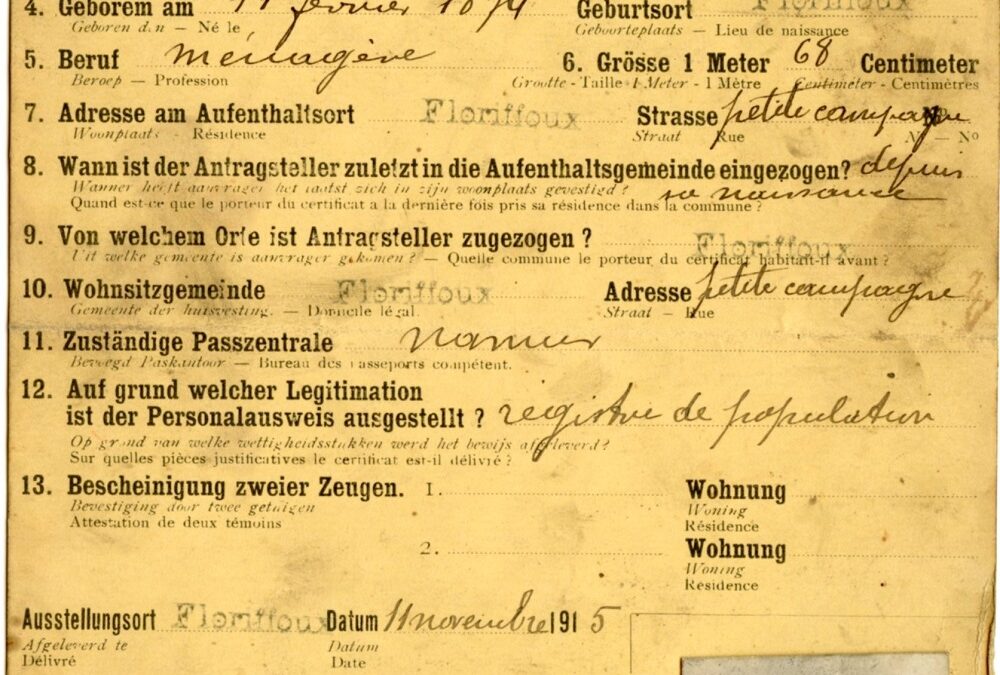 4. Geborem am 11 février 1874 Geburtsort Floriffoux
Geboren d.n — Né le Geboorteplaats — Lieu de naissance
5. Beruf menagère 6. Grösse 1 Meter 68 Centimeter
Beroep — Profession Grootte - Taille 1 Meter - 1 Mètre Centimeter - Centimètres
7. Adresse am Aufenthaltsort Floriffoux Strasse petite campagne No
Woonplaats - Résidence Straat Rue Nr — No
8. Wann ist der Antragsteller zuletzt in die Aufenthaltsgemeinde eingezogen? depuis
Wanneer heeft aanvrager het laatst zich in zijn woonplaats gevestigd ? sa naissance
Quand est-ce que le porteur du certificat a la dernière fois pris sa résidence dans la commune ?
9. Von welchem Orte ist Antragsteller zugezogen ? Floriffoux
Uit welke gemeente is aanvrager gekomen ? — Quelle commune le porteur du certificat habitait-il avant ?
10. Wohnsitzgemeinde Floriffoux Adresse petite campagne
Gemeente der huisvesting. — Domicile légal. Straat — Rue
11. Zuständige Passzentrale Namur
Bevoegd Paskantoor — Bureau des passeports compétent.
12. Auf grund welcher Legitimation
ist der Personalausweis ausgestellt ? registre de population
Op grond van welke wettigheidsstukken werd het bewijs afgeleverd ?
Sur quelles pièces justificatives le certificat est-il délivré ?
13. Bescheinigung zweier Zeugen. 1. Wohnung
Bevestiging door twee getuigen Woning
Attestation de deux témoins Résidence
2. Wohnung
Woning
Résidence
Ausstellungsort Floriffoux Datum 11 novembre 1915
Afgeleverd te Datum
Délivré Date